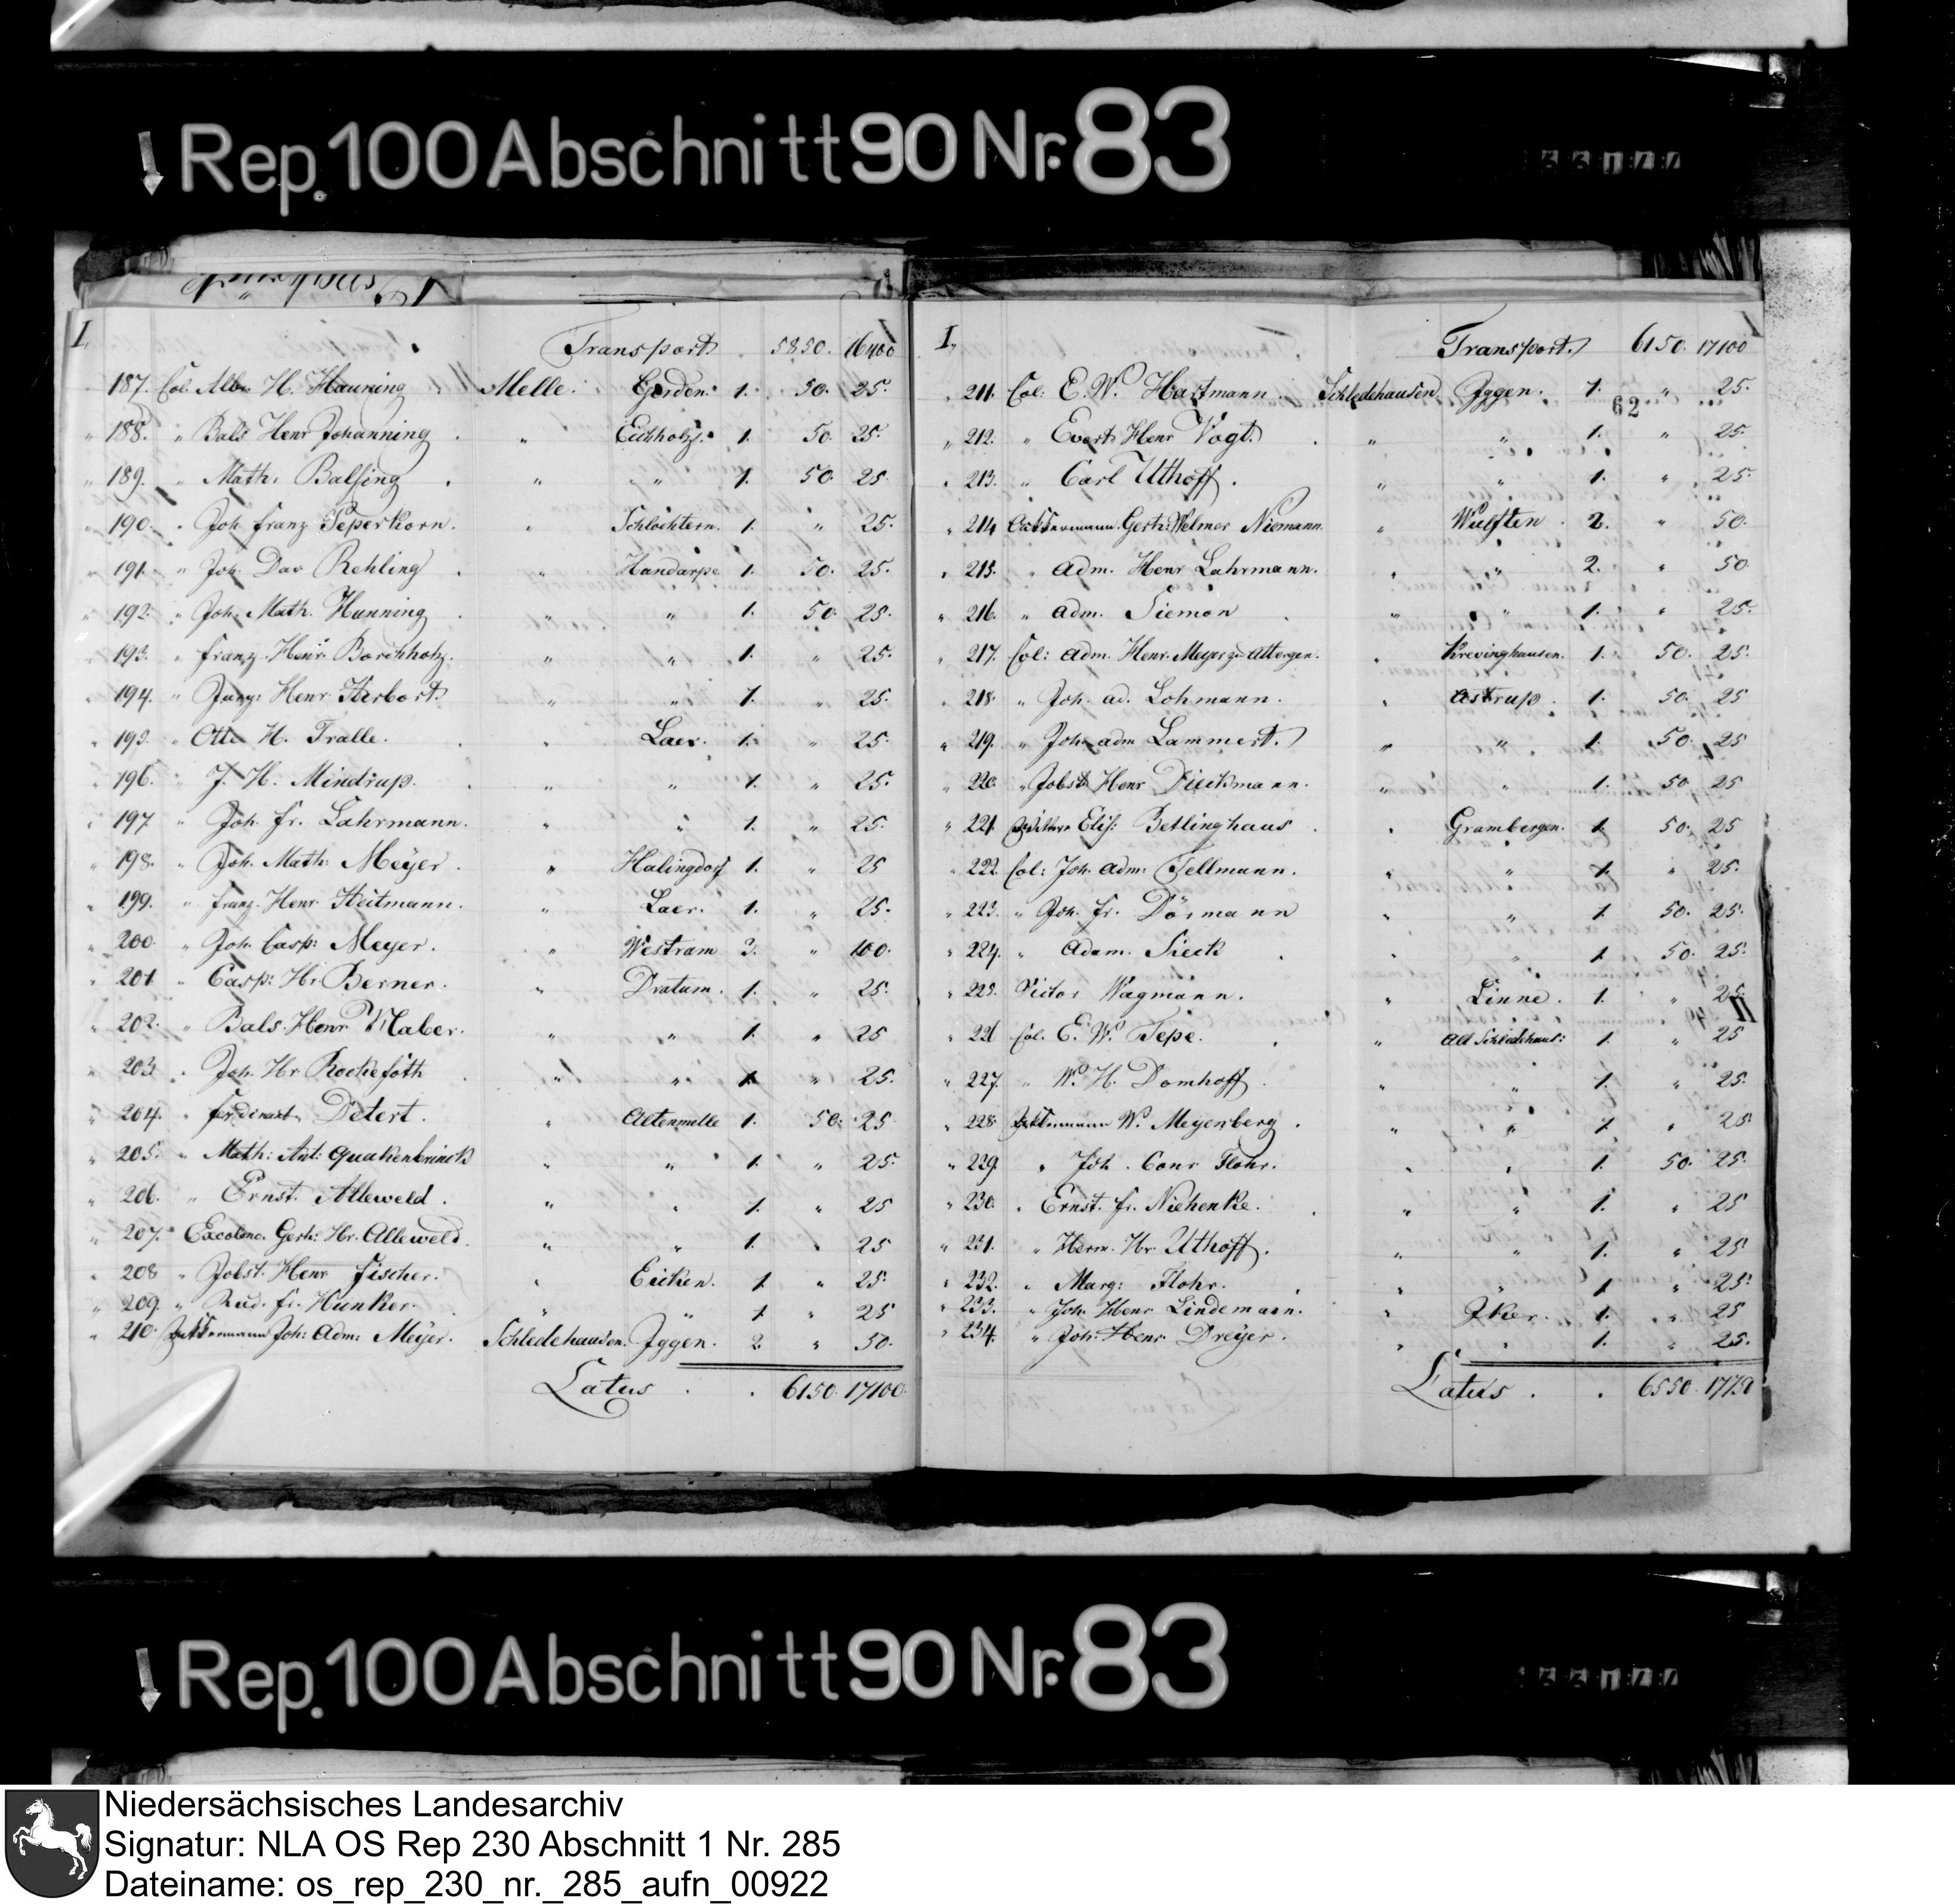 Rep. 100 Abschnitt 90 Nr. 83
I. Transport " 5850. 16400
187. Col. Alb. H. Hauning Melle. Gerden. 1. 50. 25.
" 188. " Bals Henr Johanning . " Eickholz. 1. 50. 25.
" 189. " Math: Balsing . " " " 1. 50. 25
" 190. " Joh franz Peperkorn. " Schlochtern. 1. " 25.
" 191. " Joh. Dav Rehling . " Handarpe 1. 50. 25.
" 192. " Joh. Math. Hunning . " " 1. 50. 25.
" 193. " franz. Henr. Borchholz. " " 1. " 25.
" 194. " Henr " " 1. " 25.
" 195. " Otto H. Tralle. . " Laer. 1. " 25.
" 196. " J. H. Mindrup. . " " 1. " 25.
" 197 " Joh. fr. Lahrmann. " " 1. " 25.
" 198. " Joh. Math: Meyer . " Halingdorf 1. " 25
" 199. " franz. Henr. Heitmann. " Laer. 1. " 25.
" 200. " Joh. Casp: Meyer. " Westram " 100.
" 201 " Casp: Hr. Berner. " Dratum. 1. " 25.
" 202. " Bals. Henr " " 1. " 25
" 203. " Joh. Hr Rockefoth . " " 1. " 25.
" 204. " ferdinant Detert. " Altenmelle 1. 50. 25
" 205. " Math: Ant: Quakenbrinck " " 1. " 25.
" 206. " Ernst. Alleweld . " " 1. " 25
" 207. " Gerh: Hr. Alleweld. " " 1. " 25
" 208 " Jobst. Henr fischer. " Eicken. 1. " 25.
" 209. " Rud. fr. Hunker. " " 1. " 25
" 210. Joh: Adm: Meyer. Schledehausen. Jggen. 2 " 50.
Latus . . 6150. 17100.
I. Transport. 6150. 17100
" 211. Col: E. W. Hartmann. Schledehausen Jggen. 1. " 25.
62
" 212. " Evert Henr Vogt. . " " 1. " 25.
" 213. " Carl Uthoff. " " 1. " 25.
" 214 Gerh: Welmer Niemann. " Wulften . 2. " 50.
" 215. " Adm. Henr Lahrmann. " " 2. " 50
" 216. " Adm. Siemon . " " 1. " 25.
" 217. Col: Adm. Henr. Meyer zu Attergen. " Krevinghausen. 1. 50. 25.
" 218. " Joh. Ad. Lohmann. " Astrup . 1. 50. 25
" 219. " Joh. adm Lammert. " " 1. 50. 25
" 220. " Jobst Henr Dieckmann. " " 1. 50. 25
" 221. Elis: Betlinghaus . " Grambergen. 1. 50. 25
" 222. Col: Joh. Adm: Tellmann. " " 1. " 25.
" 223. " Joh. fr. Dörmann " " 1. 50. 25.
" 224. " Adam. Sieck . " " 1. 50. 25.
" 225. Wagmann. " Linne. 1. " 25.
II
" 226 Col. E. W. Tepe. . " Alt Schledehaus: 1. " 25
" 227. " W. H. Domhoff . " " 1. " 25.
" 228. W. Meyenberg . " " 1. " 25
" 229. " Joh. Conr Flohr. " " 1. 50. 25.
" 230. " Ernst. fr. Niehenke. . " " 1. " 25
" 231. " Herm. Hr. Uthoff. " " 1. " 25
" 232. " Marg: Flohr. . " " 1. " 25.
" 233. " Joh. Henr Lindemann. " Jker. 1. " 25
" 234. " Joh: Henr Dreyer. " " 1. " 25.
Latus . . 6550. 17750
Rep. 100 Abschnitt 90 Nr. 83
Niedersächsisches Landesarchiv
Signatur: NLA OS Rep 230 Abschnitt 1 Nr. 285
Dateiname: os_rep_230_nr._285_aufn_00922